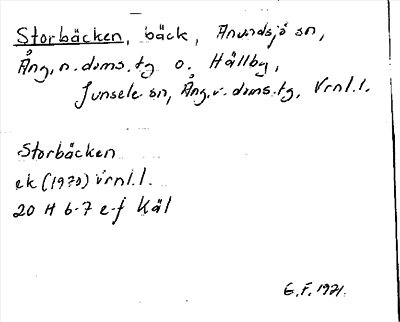 Storbäcken, bäck, Anundsjö sn,
Ång. n. doms. tg o. Hällby,
Junsele sn, Ång. v. doms. tg, Vrnl. l.
Storbäcken
ek (1970) vrnl. l.
20 H 6-7 e-f Käl
G. F. 1971.